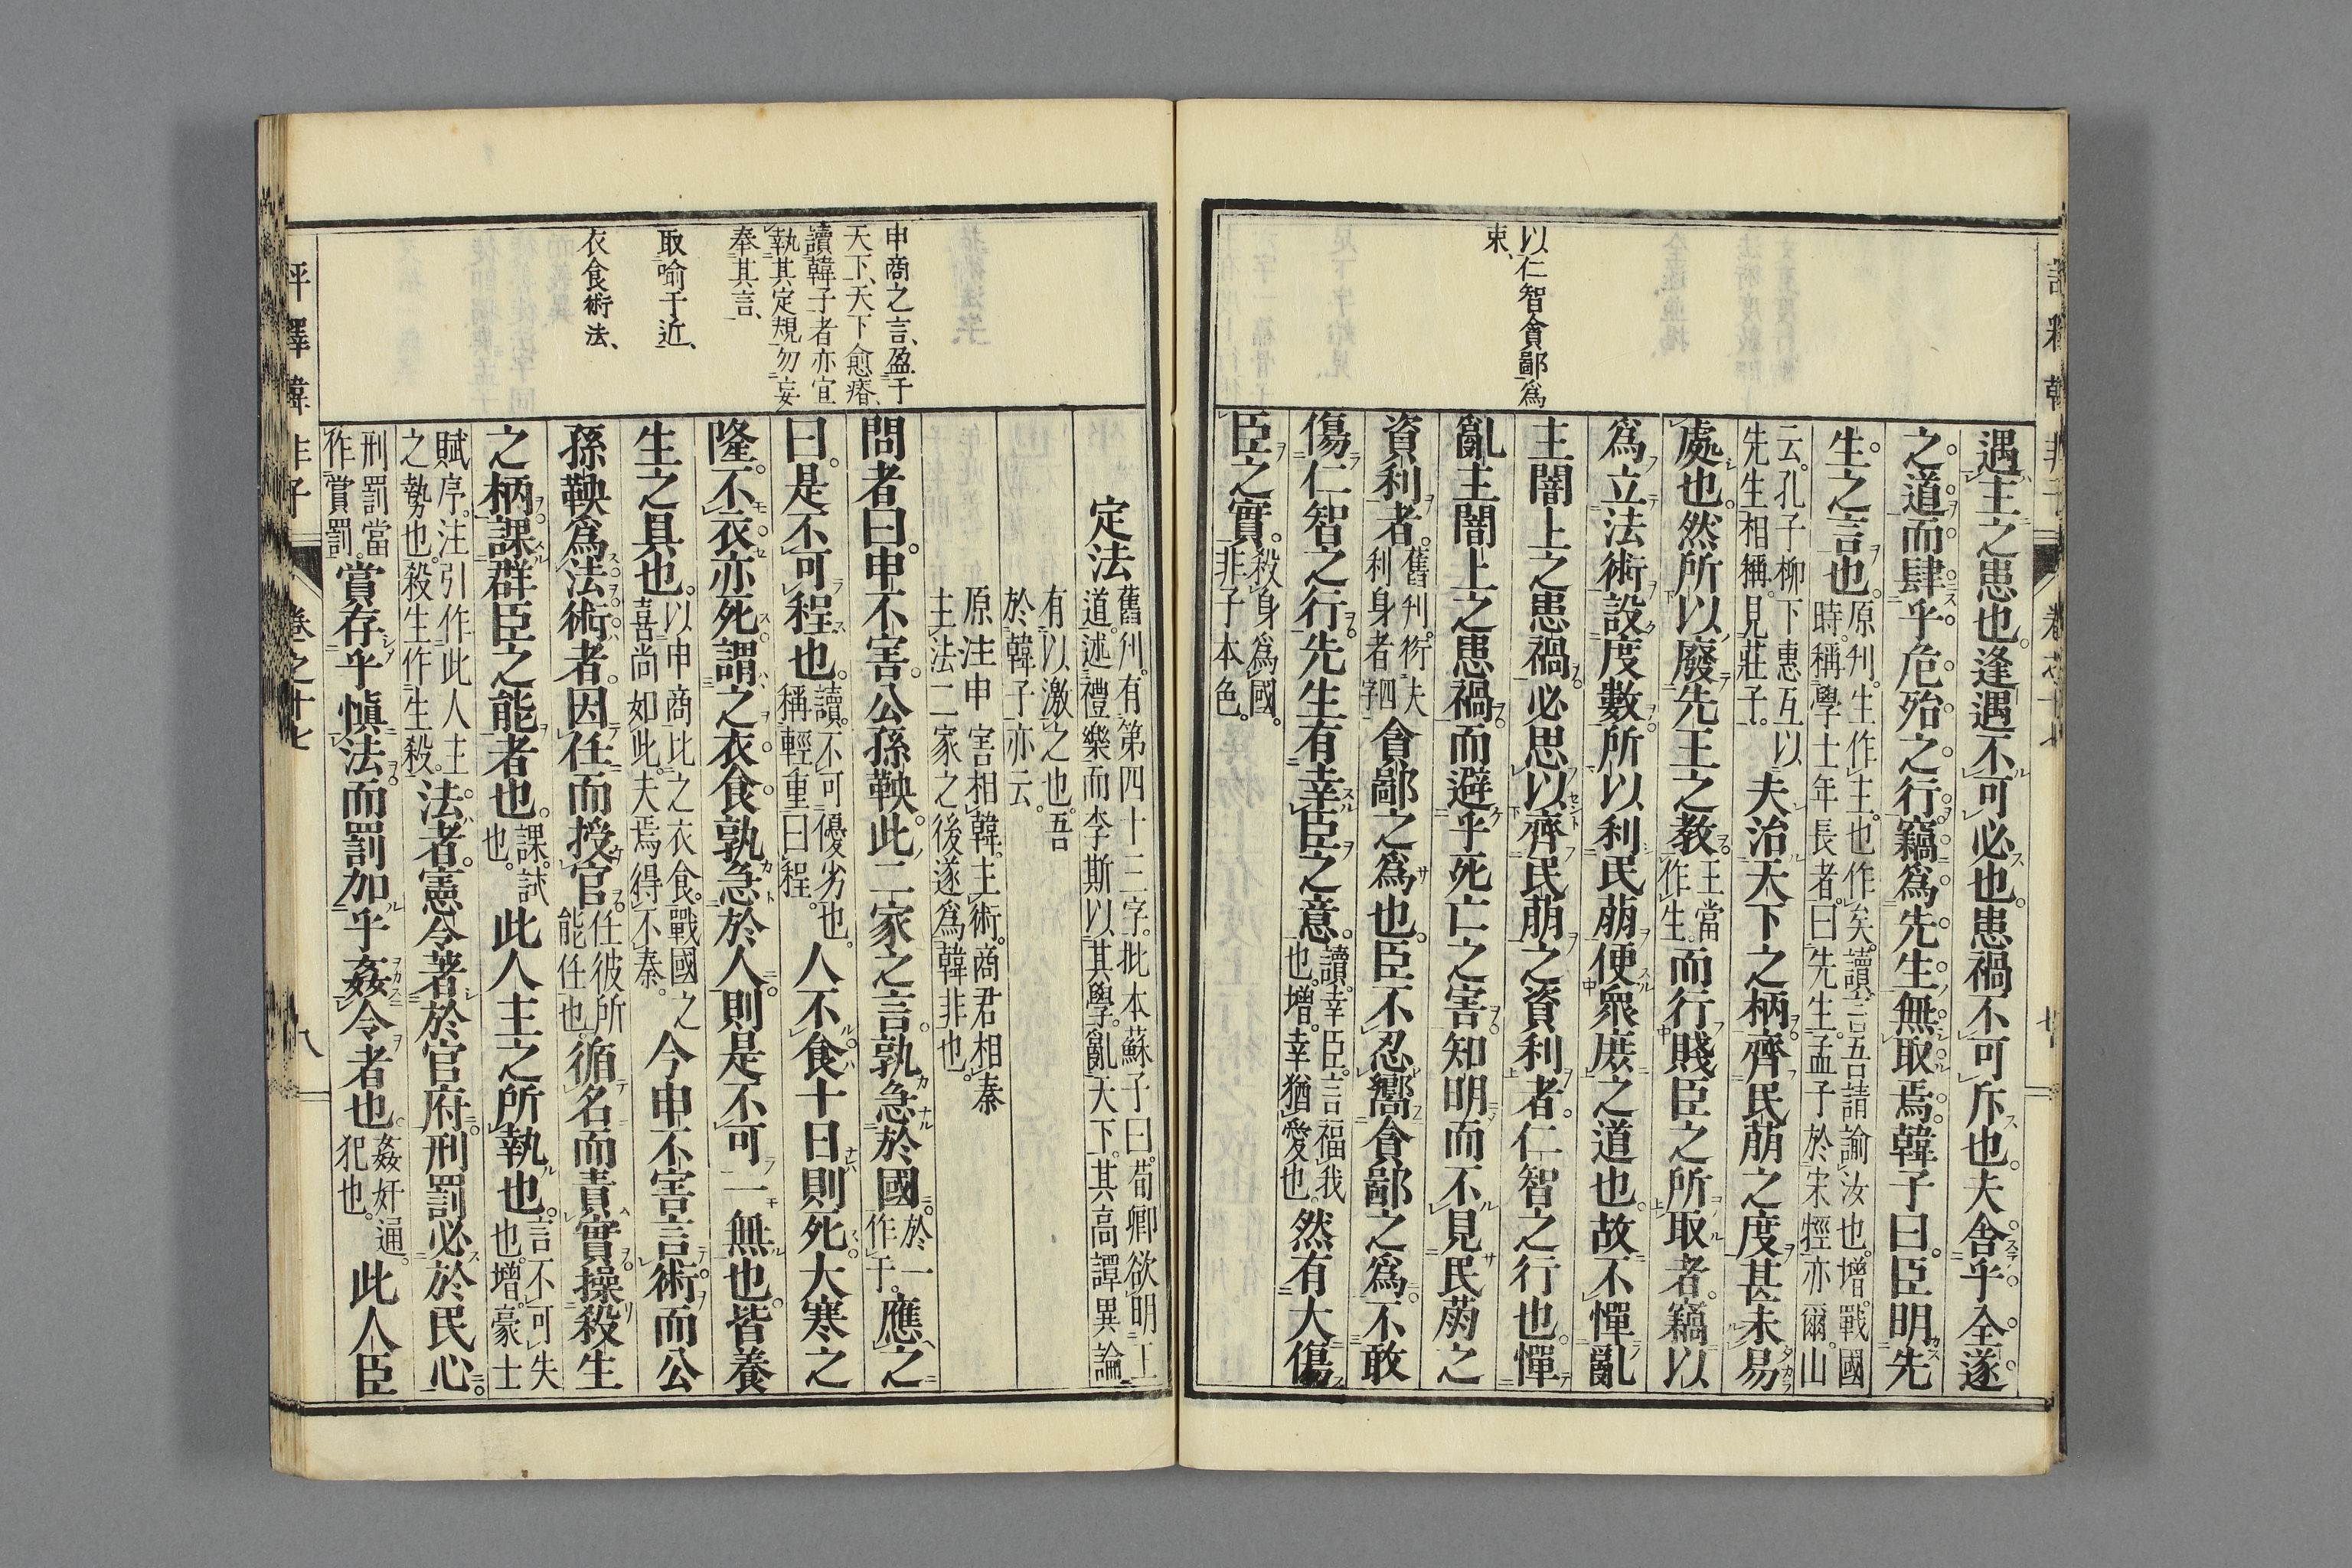 以仁智貪鄙爲
束、
遇主之患也。逢遇不可必也。患禍不可斥也。夫舍乎全遂
之道而肆乎危殆之行。竊爲先生無取焉。韓子曰。臣明先
生之言也。原刋。生作主。也作矣。讀言吾請諭汝也。增。戰國
時。稱學士年長者。曰先生。孟子於宋牼亦爾。山
云。孔子柳下惠互以
先生相稱。見莊子。夫治天下之柄。齊民萠之度。甚未易
處也。然所以廢先王之教。王當
作生。而行賤臣之所取者。竊以
爲立法術。設度數。所以利民萠便衆庶之道也。故不憚亂
主闇上之患禍。必思以齊民萠之資利者。仁智之行也。憚
亂主闇上之患禍。而避乎死亡之害。知明而不見民萠之
資利者。舊刋。衍夫
利身者四字貪鄙之爲也。臣不忍嚮貪鄙之爲。不敢
傷仁智之行。先生有幸臣之意。讀。幸臣。言福我
也。增。幸猶愛也。然有大傷
臣之實。殺身爲國。
非子本色。
申商之言、盈于
天下、天下愈瘠、
讀韓子者亦宜
執其定規、勿妄
奉其言、
取喻于近、
衣食術法、
定法舊刋。有第四十三字。批本蘇子曰。荀卿欲明王
道。述禮樂而李斯以其學。亂天下。其高譚異論。
有以激之也。吾
於韓子亦云。
原注申害相韓。主術。商君相秦
主法。二家之後遂爲韓非也。
問者曰。申不害。公孫鞅。此二家之言。孰急於國。於一
作于。應之
曰。是不可程也。讀。不可優劣也。
稱輕重曰程。人不食十日則死。大寒之
隆。不衣亦死。謂之衣食孰急於人。則是不可一無也。皆養
生之具也。以申商比之衣食。戰國之
喜尚如此。夫焉得不秦。今申不害言術。而公
孫鞅爲法。術者。因任而授官。任彼所
能任也。循名而責實。操殺生
之柄。課群臣之能者也。課。試
也。此人主之所執也。言不可失
也。增。豪士
賦序。注引作此人主
之勢也。殺生作生殺。法者。憲令著於官府。刑罰必於民心。
刑罰當
作賞罰。賞存乎慎法。而罰加乎姦令者也。姦奸通。
犯也。此人臣
評釋韓非子
卷之十七
八